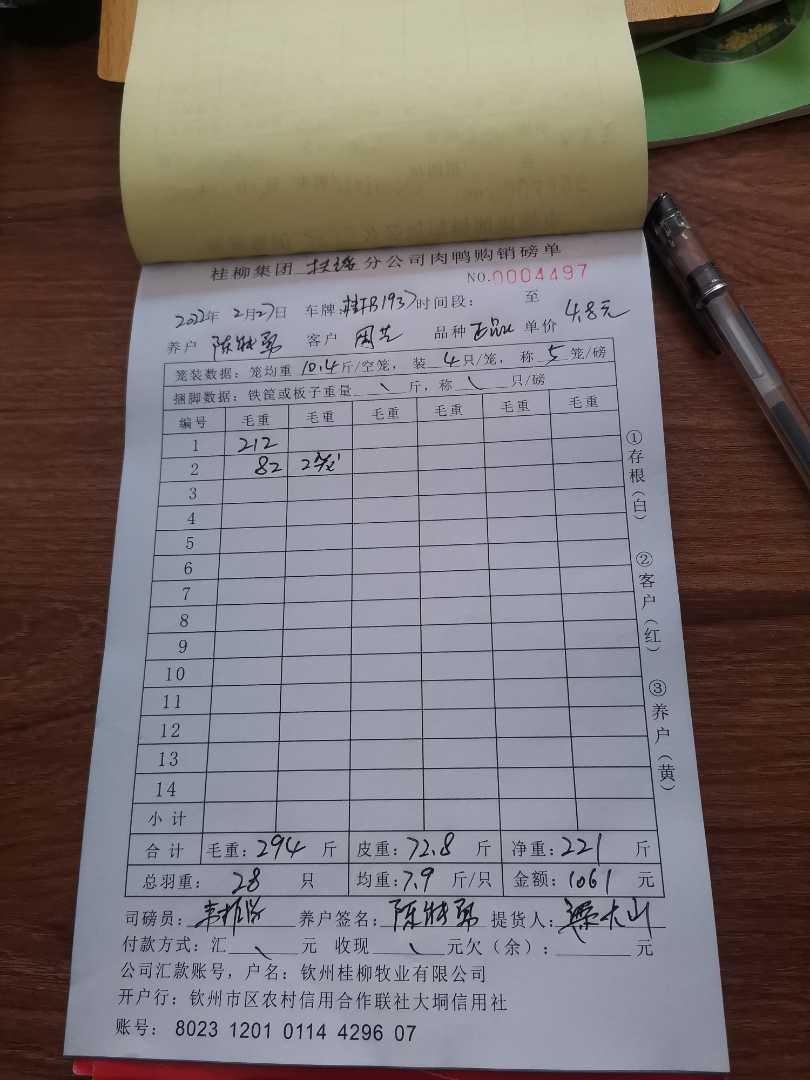 桂柳集团 分公司肉鸭购销磅单
NO.0004497
2022年 2月27日 车牌:桂B1937 时间段: 至
养户 陈林勇 客户 周艺 品种 正品 单价 4.8元
笼装数据:笼均重 10.4 斤/空笼, 装 4 只/笼, 称 5 笼/磅
捆脚数据:铁筐或板子重量 \ 斤,称 \ 只/磅
编号 毛重 毛重 毛重 毛重 毛重 毛重
1 212
2 82 2笼
3
4
5
6
7
8
9
10
11
12
13
14
小计
合计 毛重:294 斤 皮重:72.8 斤 净重:221 斤
总羽重: 28 只 均重:7.9 斤/只 金额:1061 元
司磅员: 养户签名:陈林勇 提货人:梁大山
付款方式:汇 \ 元 收现 \ 元欠(余): 元
公司汇款账号,户名:钦州桂柳牧业有限公司
开户行:钦州市区农村信用合作联社大垌信用社
账号: 8023 1201 0114 4296 07
①存根(白) ②客户(红) ③养户(黄)